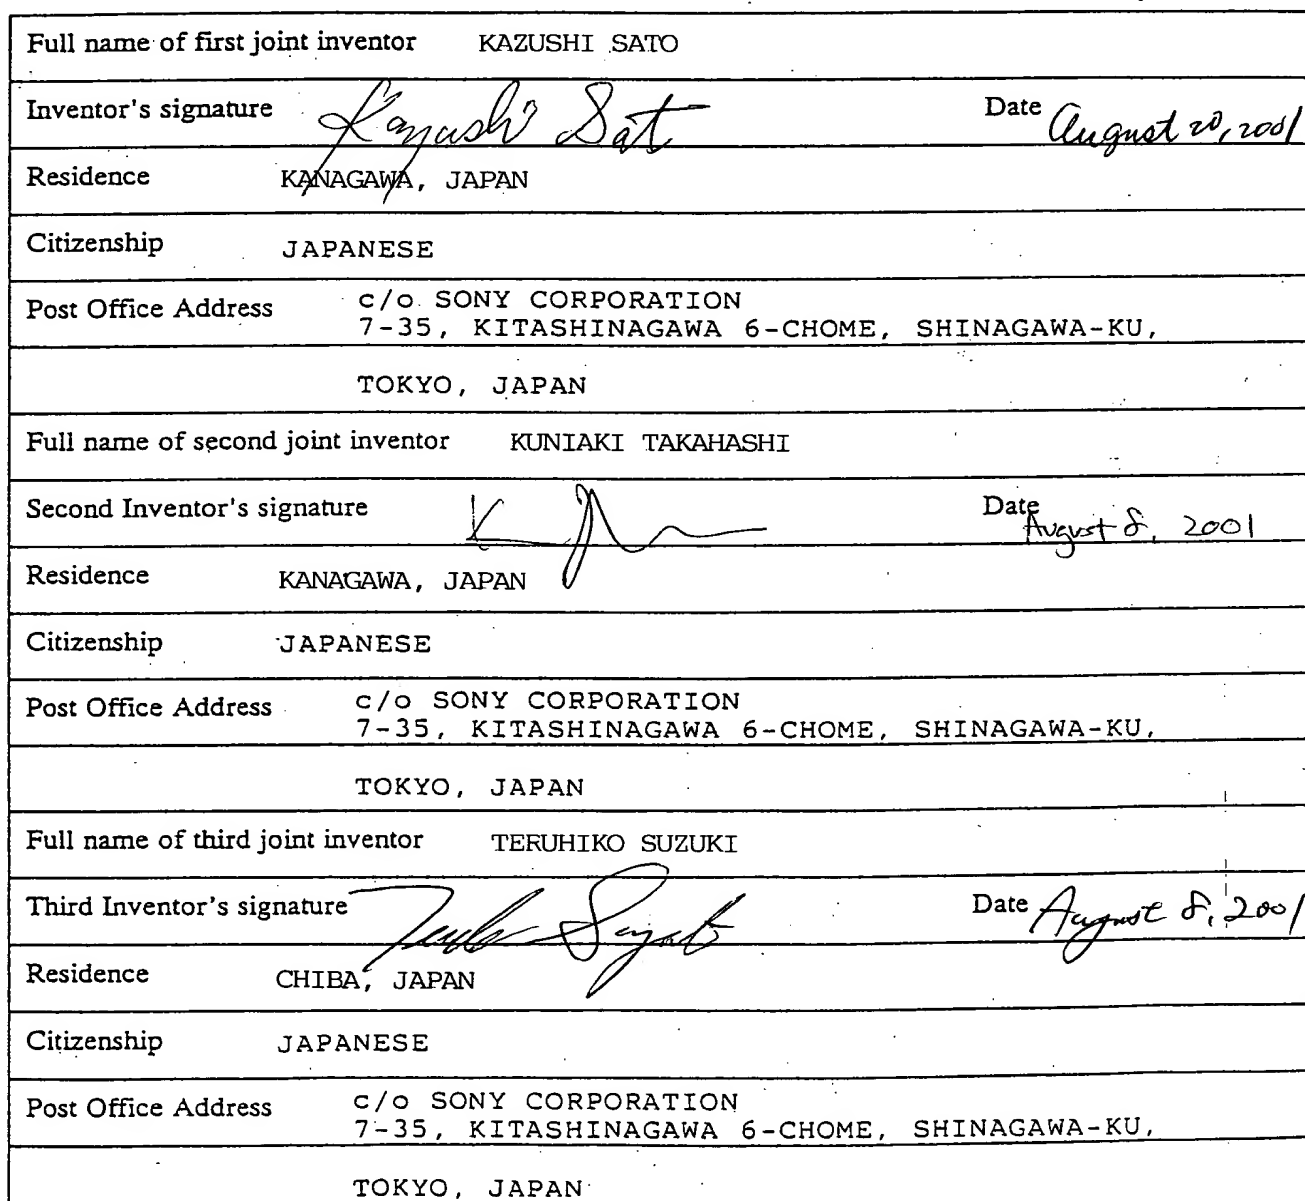 Full name of first joint inventor KAZUSHI SATO
Inventor's signature Kazushi Sato Date August 20, 2001
Residence KANAGAWA, JAPAN
Citizenship JAPANESE
Post Office Address c/o SONY CORPORATION
7-35, KITASHINAGAWA 6-CHOME, SHINAGAWA-KU,
TOKYO, JAPAN
Full name of second joint inventor KUNIAKI TAKAHASHI
Second Inventor's signature Date August 8, 2001
Residence KANAGAWA, JAPAN
Citizenship JAPANESE
Post Office Address c/o SONY CORPORATION
7-35, KITASHINAGAWA 6-CHOME, SHINAGAWA-KU,
TOKYO, JAPAN
Full name of third joint inventor TERUHIKO SUZUKI
Third Inventor's signature Date August 8, 2001
Residence CHIBA, JAPAN
Citizenship JAPANESE
Post Office Address c/o SONY CORPORATION
7-35, KITASHINAGAWA 6-CHOME, SHINAGAWA-KU,
TOKYO, JAPAN